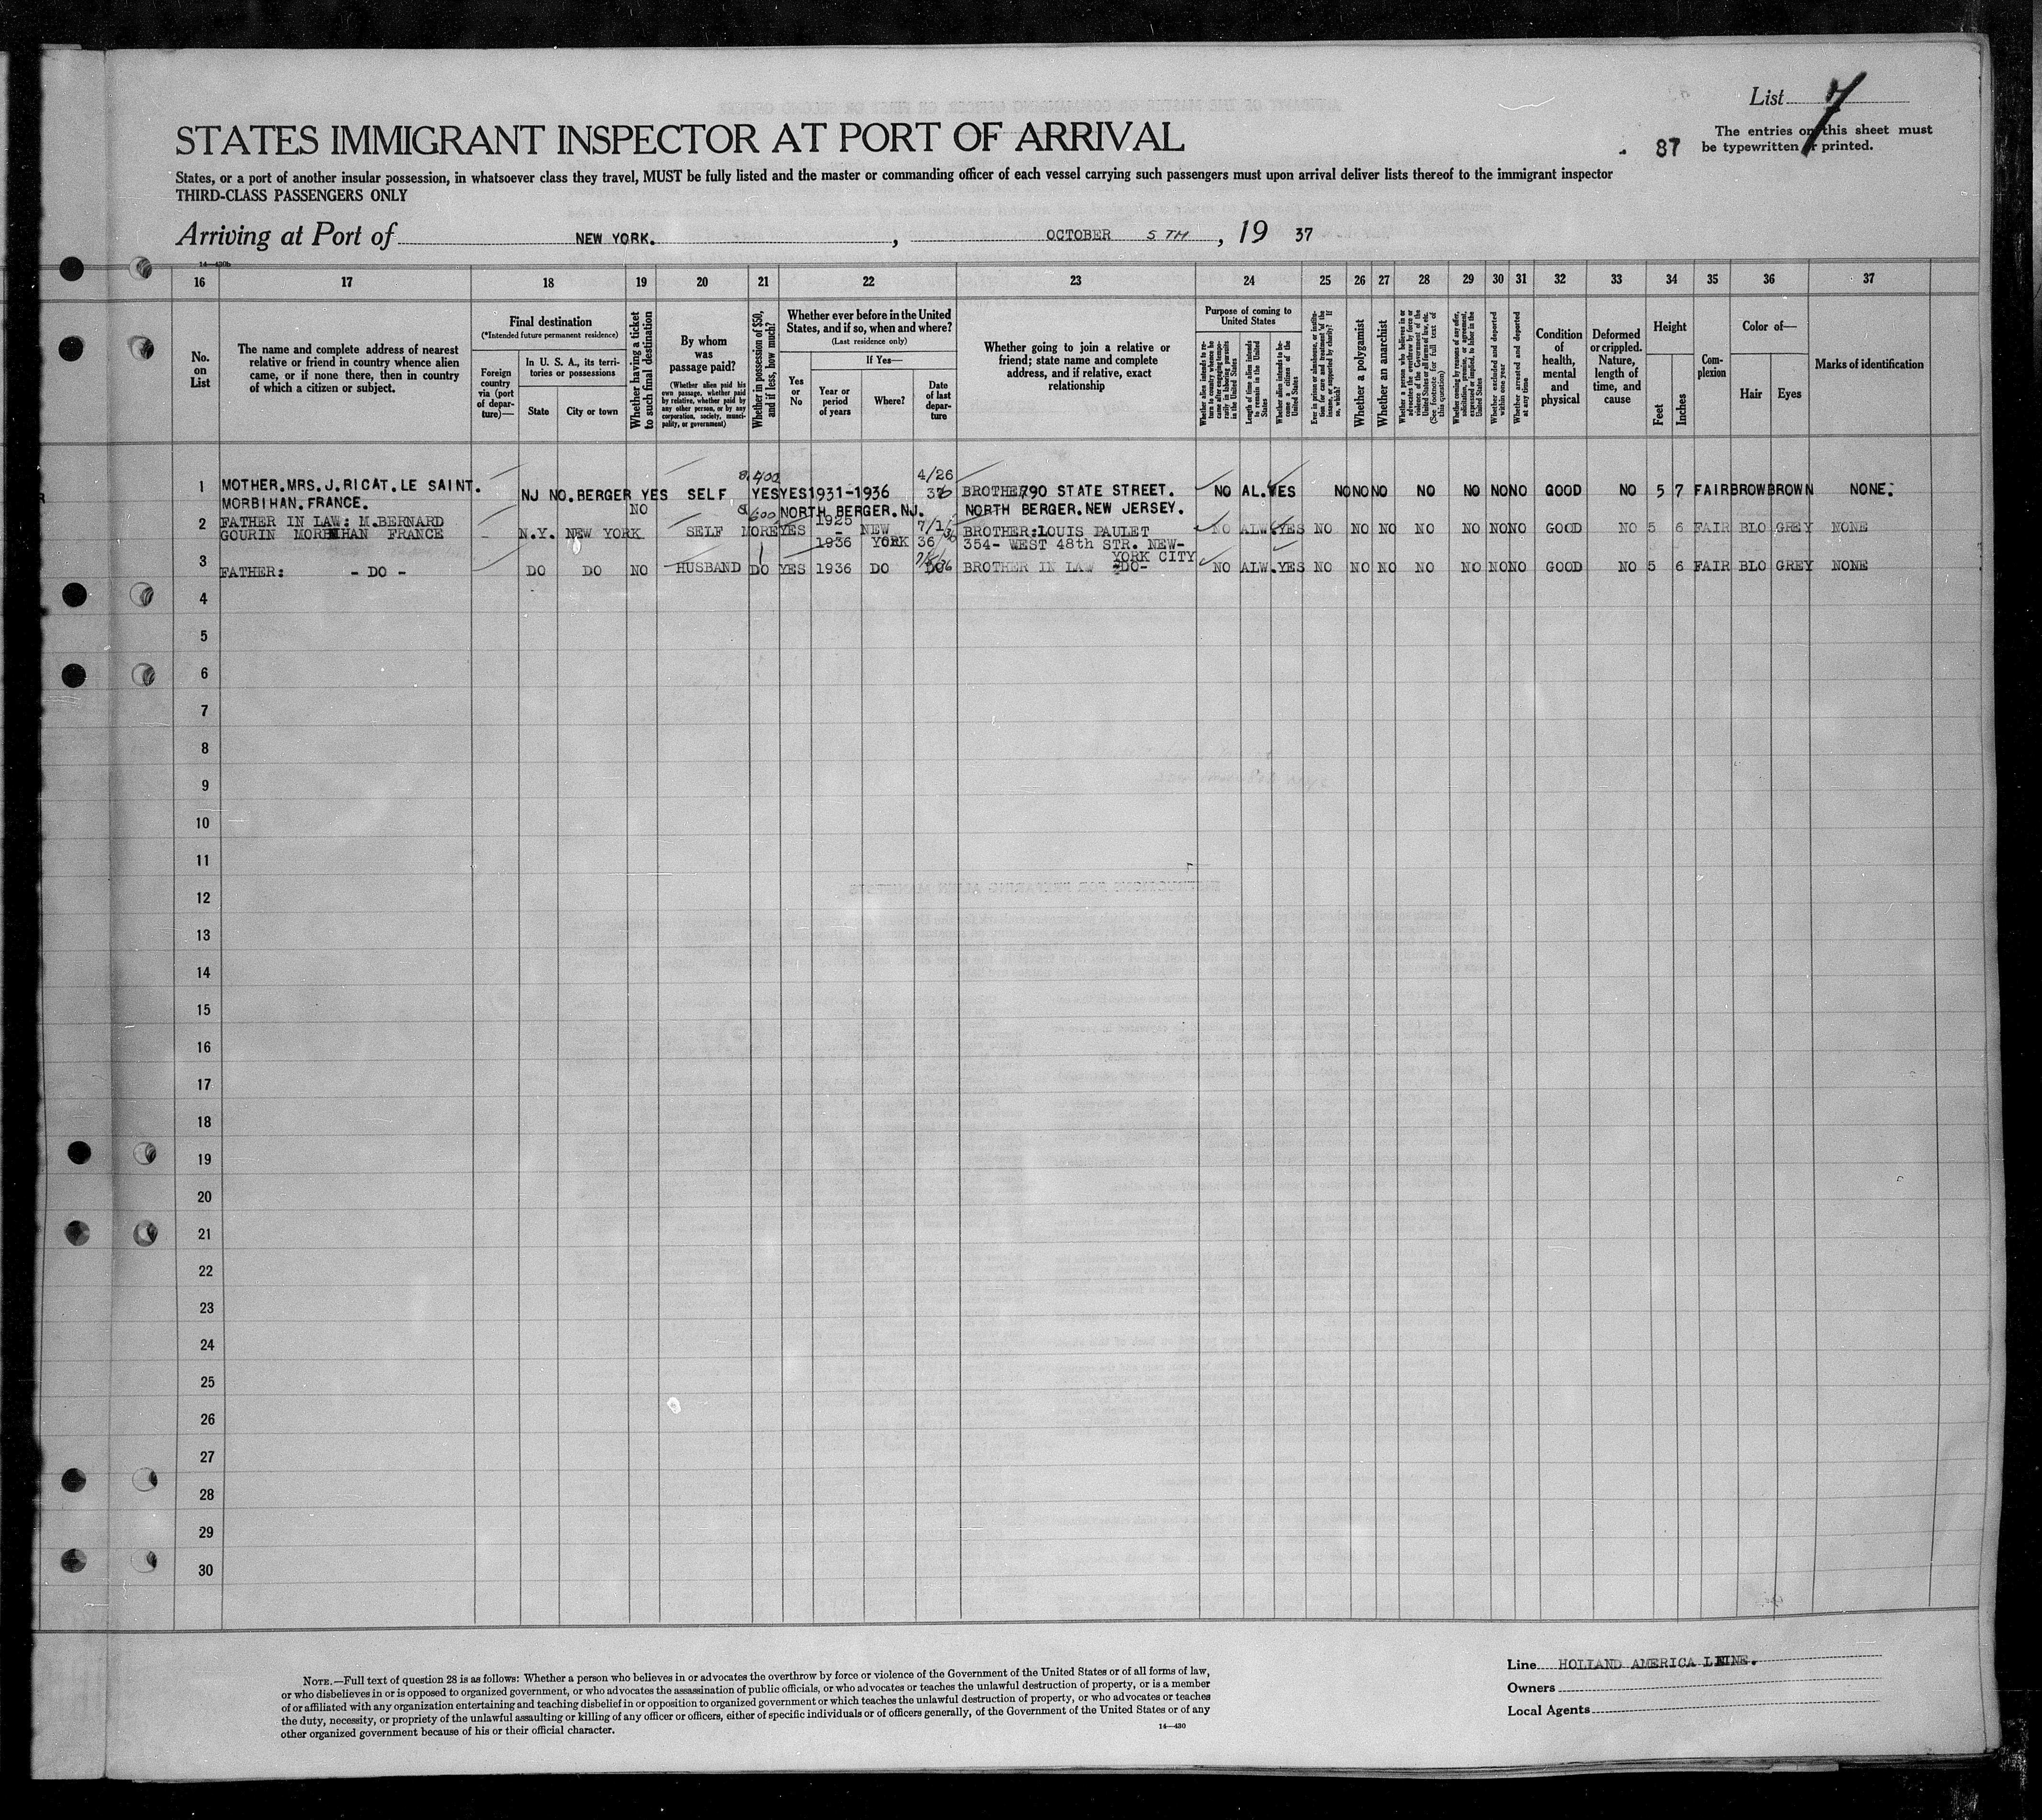 List 7
STATES IMMIGRANT INSPECTOR AT PORT OF ARRIVAL
87
The entries on this sheet must
be typewritten or printed.
States, or a port of another insular possession, in whatsoever class they travel, MUST be fully listed and the master or commanding officer of each vessel carrying such passengers must upon arrival deliver lists thereof to the immigrant inspector
THIRD-CLASS PASSENGERS ONLY
Arriving at Port of NEW YORK. , OCTOBER 5 TH , 19 37
14—430b
16 17 18 19 20 21 22 23 24 25 26 27 28 29 30 31 32 33 34 35 36 37
No.
on
List
The name and complete address of nearest
relative or friend in country whence alien
came, or if none there, then in country
of which a citizen or subject.
Final destination
(*Intended future permanent residence)
Foreign
country
via (port
of depar-
ture)—
In U. S. A., its terri-
tories or possessions
State
City or town
Whether having a ticket
to such final destination
By whom
was
passage paid?
(Whether alien paid his
own passage, whether paid
by relative, whether paid
by any other person, or by any
corporation, society, munici-
pality, or government)
Whether in possession of $50,
and if less, how much?
Whether ever before in the United
States, and if so, when and where?
(Last residence only)
Yes
or
No
If Yes—
Year or
period
of years
Where?
Date
of last
depar-
ture
Whether going to join a relative or
friend; state name and complete
address, and if relative, exact
relationship
Purpose of coming to
United States
Whether alien intends to re-
turn to country whence he
came after engaging tempo-
rarily in laboring pursuits
in the United States
Length of time alien intends
to remain in the United
States
Whether alien intends to be-
come a citizen of the
United States
Ever in prison or almshouse, or institu-
tion for care and treatment of the
insane, or supported by charity? If
so, which?
Whether a polygamist
Whether an anarchist
Whether a person who believes in or
advocates the overthrow by force or
violence of the Government of the
United States or all forms of law, etc.
(See footnote for full text of
this question)
Whether coming by reason of any offer,
solicitation, promise, or agreement,
expressed or implied, to labor in the
United States
Whether excluded and deported
within one year
Whether arrested and deported
at any time
Condition
of
health,
mental
and
physical
Deformed
or crippled.
Nature,
length of
time, and
cause
Height
Feet
Inches
Com-
plexion
Color of—
Hair
Eyes
Marks of identification
1 MOTHER.MRS.J.RICAT.LE SAINT.
MORBIHAN.FRANCE.
NJ NO.BERGER YES SELF YES YES 1931-1936 4/26
NO
NORTH BERGER.NJ.
BROTHER 790 STATE STREET.
NORTH BERGER.NEW JERSEY.
NO AL. YES NO NO NO NO NO NO NO GOOD NO 5 7 FAIR BROW BROWN NONE.
2 FATHER IN LAW: M.BERNARD
GOURIN MORBIHAN FRANCE
- N.Y. NEW YORK SELF MORE YES 1925 - 1936 NEW YORK 7/1 36
BROTHER:LOUIS PAULET
354- WEST 48th STR. NEW-
YORK CITY
NO ALW. YES NO NO NO NO NO NO NO GOOD NO 5 6 FAIR BLO GREY NONE
3 FATHER: - DO -
DO DO NO HUSBAND DO YES 1936 DO
BROTHER IN LAW -DO-
NO ALW. YES NO NO NO NO NO NO NO GOOD NO 5 6 FAIR BLO GREY NONE
4
5
6
7
8
9
10
11
12
13
14
15
16
17
18
19
20
21
22
23
24
25
26
27
28
29
30
NOTE.—Full text of question 28 is as follows: Whether a person who believes in or advocates the overthrow by force or violence of the Government of the United States or of all forms of law,
or who disbelieves in or is opposed to organized government, or who advocates the assassination of public officials, or who advocates or teaches the unlawful destruction of property, or is a member
of or affiliated with any organization entertaining and teaching disbelief in or opposition to organized government or which teaches the unlawful destruction of property, or who advocates or teaches
the duty, necessity, or propriety of the unlawful assaulting or killing of any officer or officers, either of specific individuals or of officers generally, of the Government of the United States or of any
other organized government because of his or their official character.
14—430
Line HOLLAND AMERICA LINE.
Owners
Local Agents